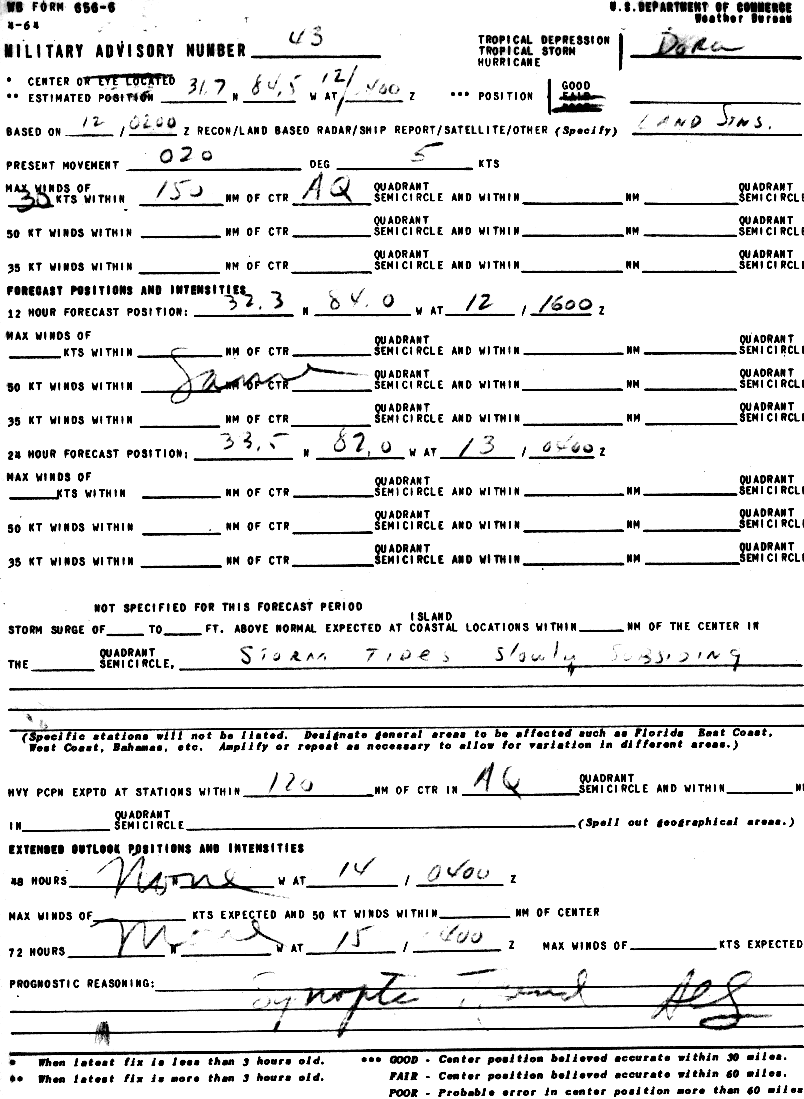 WB FORM 656-6 U.S. DEPARTMENT OF COMMERCE
4-64 Weather Bureau
MILITARY ADVISORY NUMBER 43 TROPICAL DEPRESSION Dora
TROPICAL STORM
HURRICANE
* CENTER OR EYE LOCATED
** ESTIMATED POSITION 31.7 N 84.5 W AT 12/0400 Z *** POSITION GOOD
FAIR
POOR
BASED ON 12 / 0200 Z RECON/LAND BASED RADAR/SHIP REPORT/SATELLITE/OTHER (Specify) LAND
PRESENT MOVEMENT 020 DEG 5 KTS
MAX WINDS OF QUADRANT QUADRANT
30 KTS WITHIN 150 NM OF CTR AQ SEMICIRCLE AND WITHIN NM SEMICIRCLE
QUADRANT QUADRANT
50 KT WINDS WITHIN NM OF CTR SEMICIRCLE AND WITHIN NM SEMICIRCLE
QUADRANT QUADRANT
35 KT WINDS WITHIN NM OF CTR SEMICIRCLE AND WITHIN NM SEMICIRCLE
FORECAST POSITIONS AND INTENSITIES
12 HOUR FORECAST POSITION: 32.3 N 84.0 W AT 12 / 1600 Z
MAX WINDS OF QUADRANT QUADRANT
KTS WITHIN NM OF CTR SEMICIRCLE AND WITHIN NM SEMICIRCLE
QUADRANT QUADRANT
50 KT WINDS WITHIN Same NM OF CTR SEMICIRCLE AND WITHIN NM SEMICIRCLE
QUADRANT QUADRANT
35 KT WINDS WITHIN NM OF CTR SEMICIRCLE AND WITHIN NM SEMICIRCLE
24 HOUR FORECAST POSITION: 33.5 N 82.0 W AT 13 / 0400 Z
MAX WINDS OF QUADRANT QUADRANT
KTS WITHIN NM OF CTR SEMICIRCLE AND WITHIN NM SEMICIRCLE
QUADRANT QUADRANT
50 KT WINDS WITHIN NM OF CTR SEMICIRCLE AND WITHIN NM SEMICIRCLE
QUADRANT QUADRANT
35 KT WINDS WITHIN NM OF CTR SEMICIRCLE AND WITHIN NM SEMICIRCL
NOT SPECIFIED FOR THIS FORECAST PERIOD
ISLAND
STORM SURGE OF TO FT. ABOVE NORMAL EXPECTED AT COASTAL LOCATIONS WITHIN NM OF THE CENTER IN
QUADRANT
THE SEMICIRCLE, STORM TIDES Slowly SUBSIDING
(Specific stations will not be listed. Designate general areas to be affected such as Florida East Coast,
West Coast, Bahamas, etc. Amplify or repeat as necessary to allow for variation in different areas.)
QUADRANT
HVY PCPN EXPTD AT STATIONS WITHIN 120 NM OF CTR IN AQ SEMICIRCLE AND WITHIN N
QUADRANT
IN SEMICIRCLE (Spell out geographical areas.)
EXTENDED OUTLOOK POSITIONS AND INTENSITIES
48 HOURS None N W AT 14 / 0400 Z
MAX WINDS OF KTS EXPECTED AND 50 KT WINDS WITHIN NM OF CENTER
72 HOURS None N W AT 15 / 0400 Z MAX WINDS OF KTS EXPECTED
PROGNOSTIC REASONING: Synoptic Trend
* When latest fix is less than 3 hours old. *** GOOD - Center position believed accurate within 30 miles.
** When latest fix is more than 3 hours old. FAIR - Center position believed accurate within 60 miles.
POOR - Probable error in center position more than 60 miles